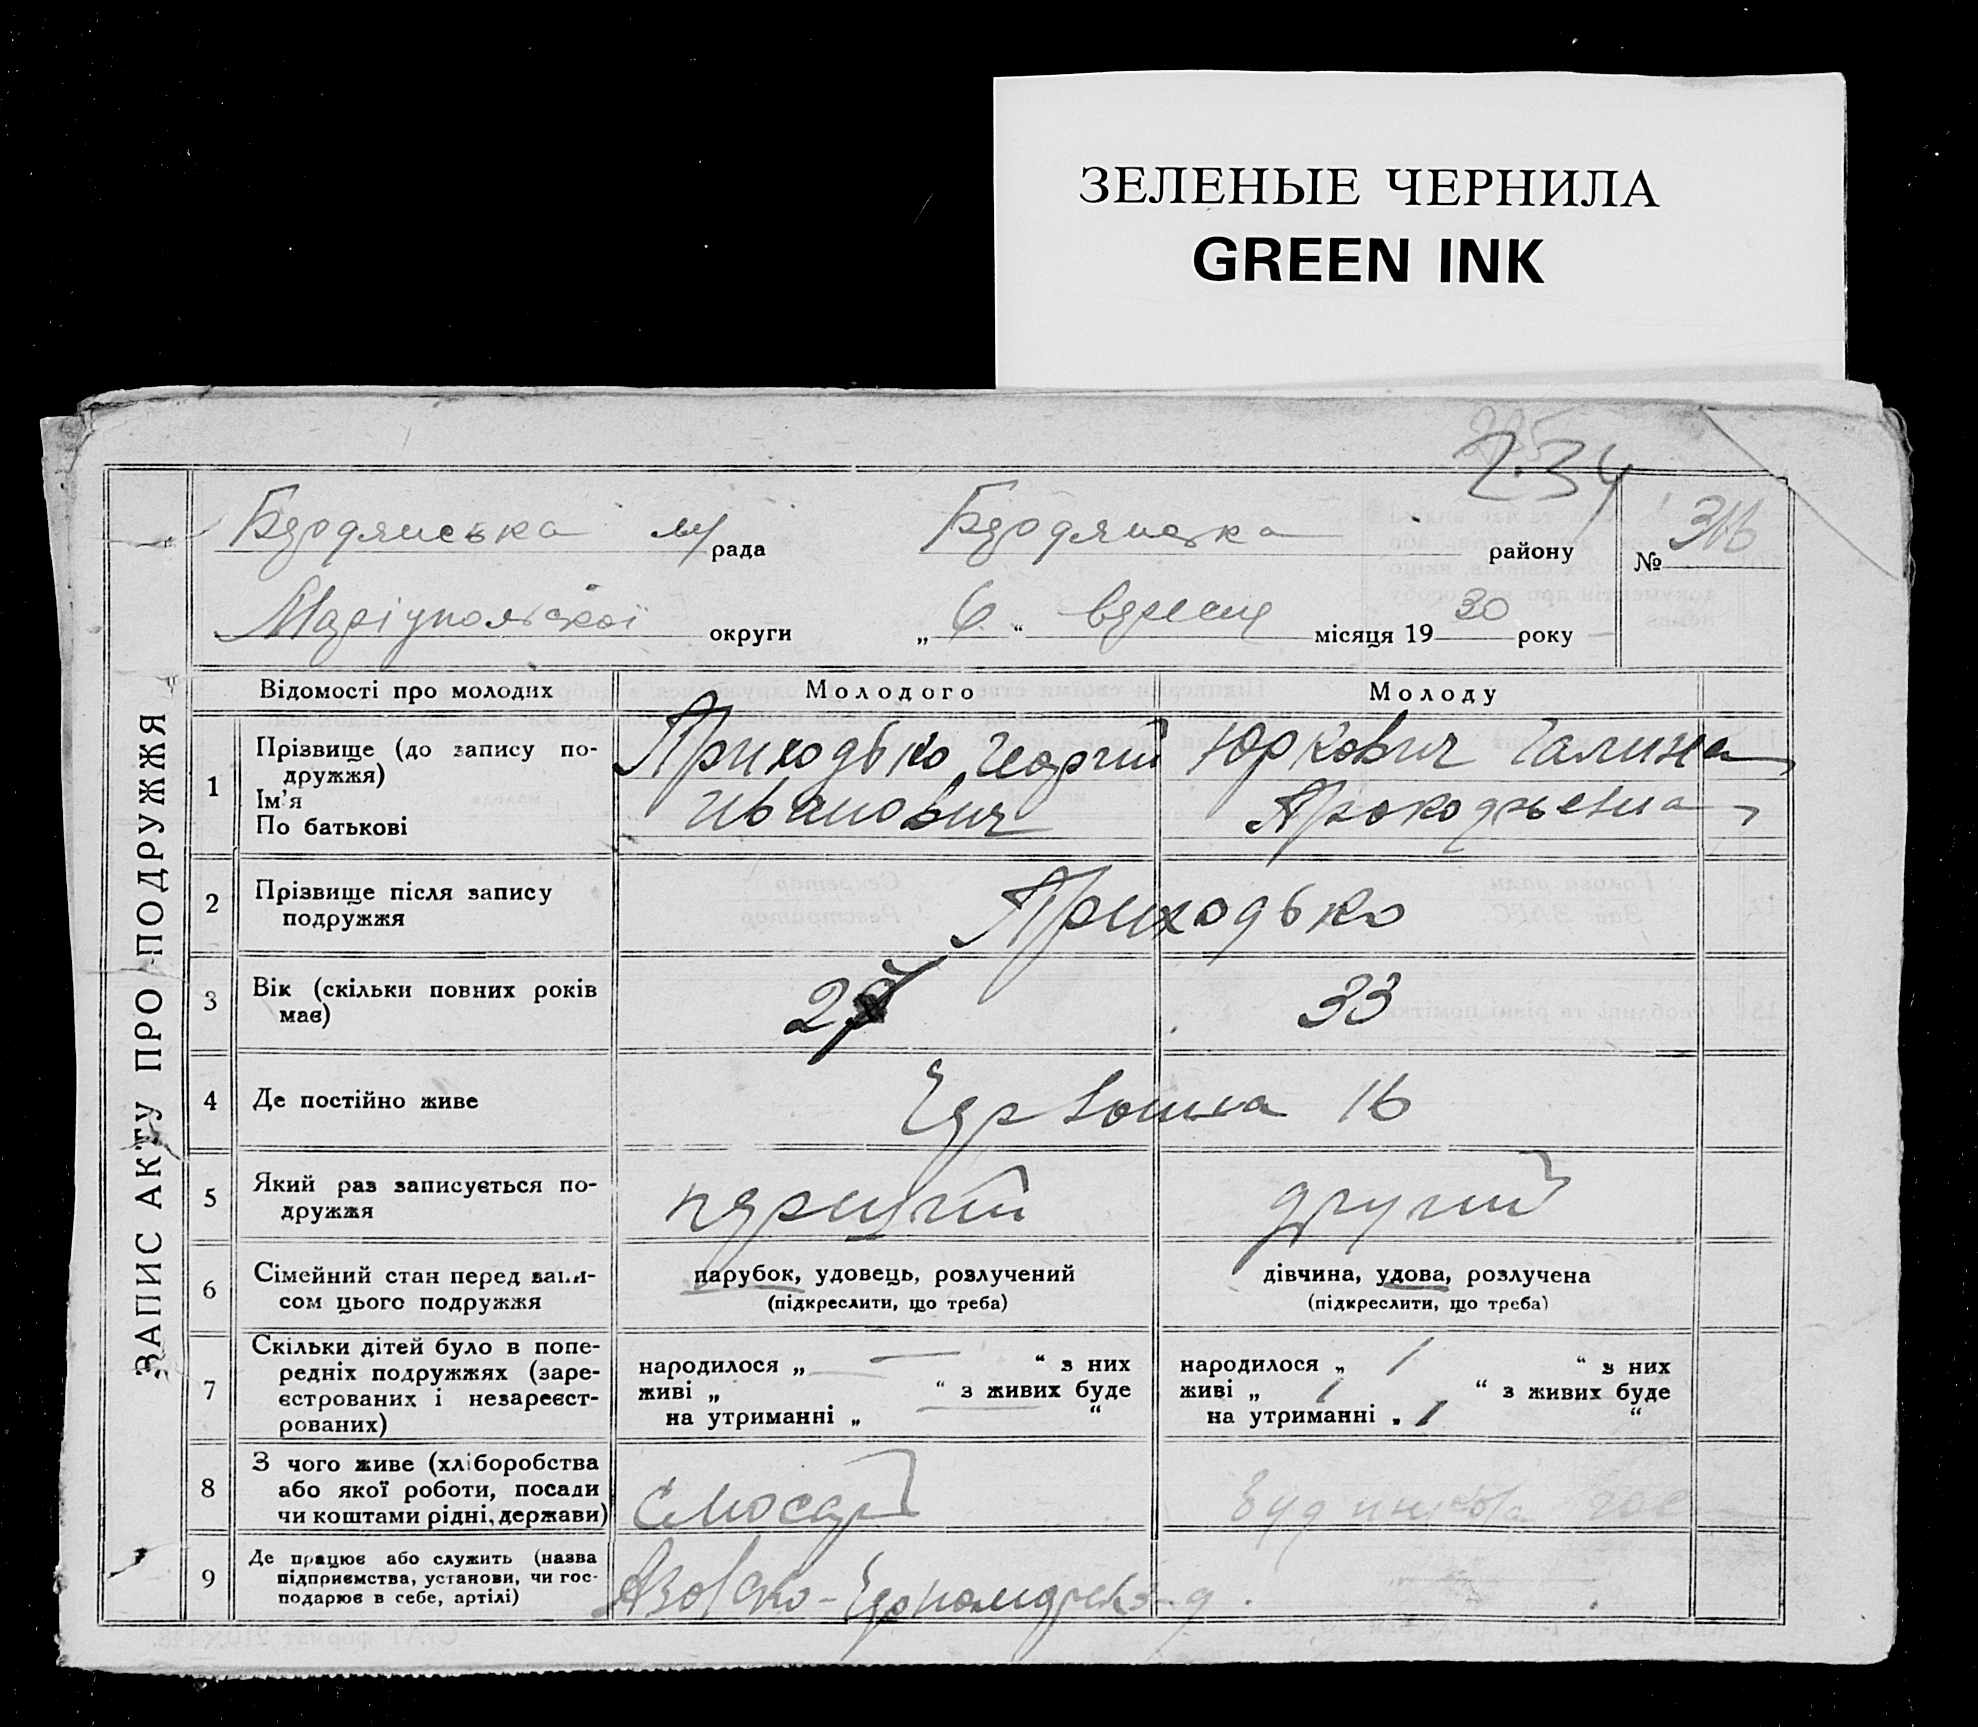 ЗЕЛЕНЫЕ ЧЕРНИЛА
GREEN INK
234
Бердянська м/рада Бердянська району № 316
Маріупольскої округи „ 6 “ вересня місяця 19 30 року
ЗАПИС АКТУ ПРО ПОДРУЖЖЯ
Відомості про молодих Молодого Молоду
1 Прізвище (до запису по-
дружжя)
Ім'я
По батькові
Приходько Георгий
Иванович
Юркович Галина
2 Прізвище після запису
подружжя
Приходько
3 Вік (скільки повних років
має)
33
4 Де постійно живе
16
5 Який раз записується по-
дружжя
перший другий
6 Сімейний стан перед запи-
сом цього подружжя
парубок, удовець, розлучений
(підкреслити, що треба)
дівчина, удова, розлучена
(підкреслити, що треба)
7 Скільки дітей було в попе-
редніх подружжях (заре-
єстрованих і незареєст-
рованих)
народилося „ — “ з них
живі „ “ з живих буде
на утриманні „ — “
народилося „ 1 “ з них
живі „ 1 “ з живих буде
на утриманні „ 1 “
8 З чого живе (хліборобства
або якої роботи, посади
чи коштами рідні, держави)
слюсар
9 Де працює або служить (назва
підприємства, установи, чи гос-
подарює в себе, артілі)
Азовско-